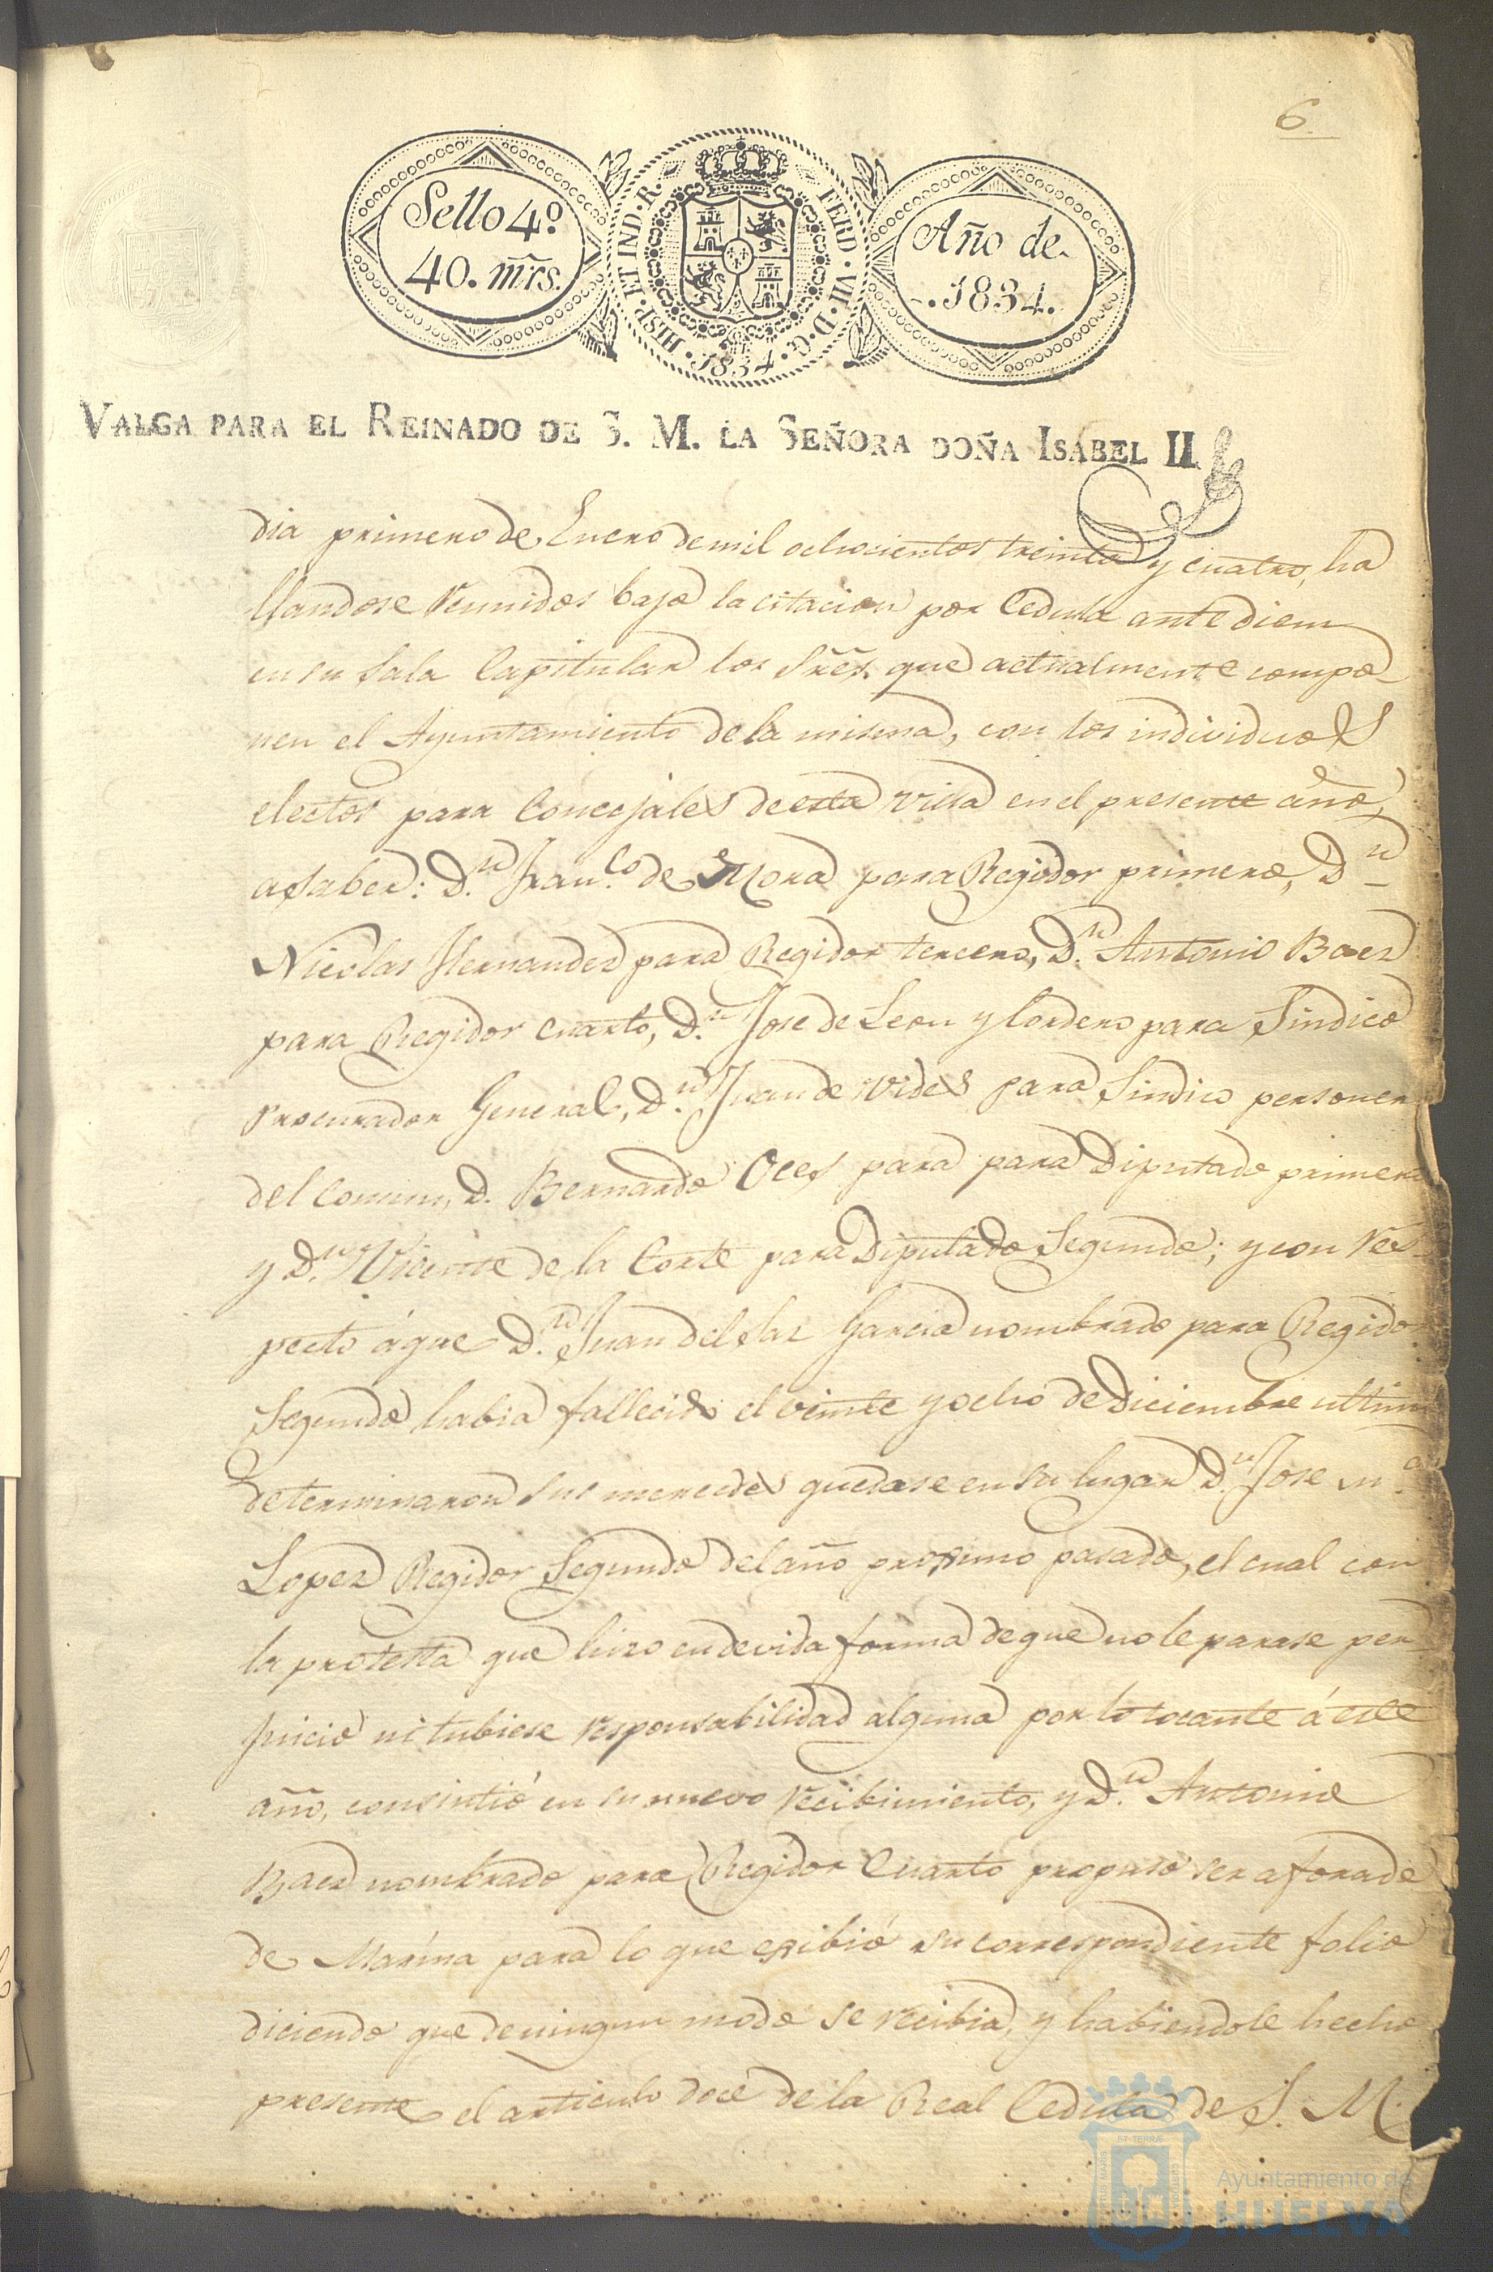 6
Sello 4º
40. mrs.
HISP. ET IND. R. FERD. VII. D. G. 1834
Año de
1834.
VALGA PARA EL REINADO DE S. M. LA SEÑORA DOÑA ISABEL II
dia primero de Enero de mil ochocientos treinta y cuatro, ha
llandose reunidos bajo la citacion por Cedula ante diem
en su Sala Capitular los Sres. que actualmente compo-
nen el Ayuntamiento de la misma, con los individuos
electos para Concejales de esta villa en el presente año,
a saber: D.n Fran.co de Mora para Regidor primero, D.n
Nicolas Hernandez para Regidor tercero, D.n Antonio Baez
para Regidor cuarto, D.n Jose de Leon y Cordero para Sindico
procurador General, D.n Juan de Vides para Sindico personer
del Comun, D. Bernardo Oces para para Diputado primero
y D.n Vicente de la Corte para Diputado Segundo; y con res-
pecto á que D.n Juan del Saz Garcia nombrado para Regidor
Segundo habia fallecido el veinte y ocho de Diciembre ultimo
determinaron sus mercedes quedase en su lugar D.n Jose M.a
Lopez Regidor Segundo del año proximo pasado, el cual con
la protesta que hizo en devida forma de que no le parase per
juicio ni tubiese responsabilidad alguna por lo tocante á este
año, consintió en su nuevo recibimiento, y D.n Antonio
Baez nombrado para Regidor Cuarto propuso ser aforado
de Marina para lo que exibió su correspondiente folio
diciendo que de ningun modo se recibia, y habiendole hecho
presente el articulo doce de la Real Cedula de S. M.
Ayuntamiento de
HUELVA